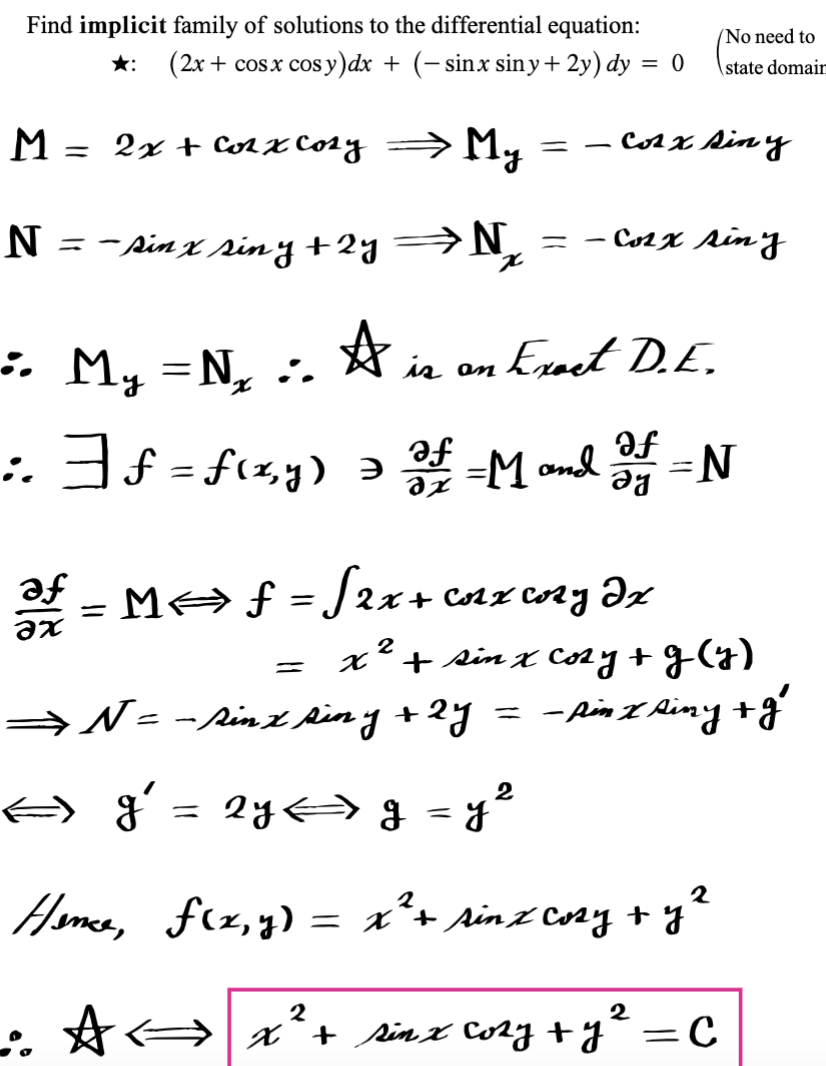 Find implicit family of solutions to the differential equation: (No need to
★: (2x + cos x cos y)dx + (− sin x sin y + 2y) dy = 0 state domain
M = 2x + cos x cos y ⟹ M_y = − cos x sin y
N = − sin x sin y + 2y ⟹ N_x = − cos x sin y
∴ M_y = N_x ∴ ☆ is an Exact D.E.
∴ ∃ f = f(x,y) ∋ ∂f/∂x = M and ∂f/∂y = N
∂f/∂x = M ⟺ f = ∫ 2x + cos x cos y ∂x
= x² + sin x cos y + g(y)
⟹ N = − sin x sin y + 2y = − sin x sin y + g'
⟺ g' = 2y ⟺ g = y²
Hence, f(x,y) = x² + sin x cos y + y²
∴ ☆ ⟺ x² + sin x cos y + y² = C